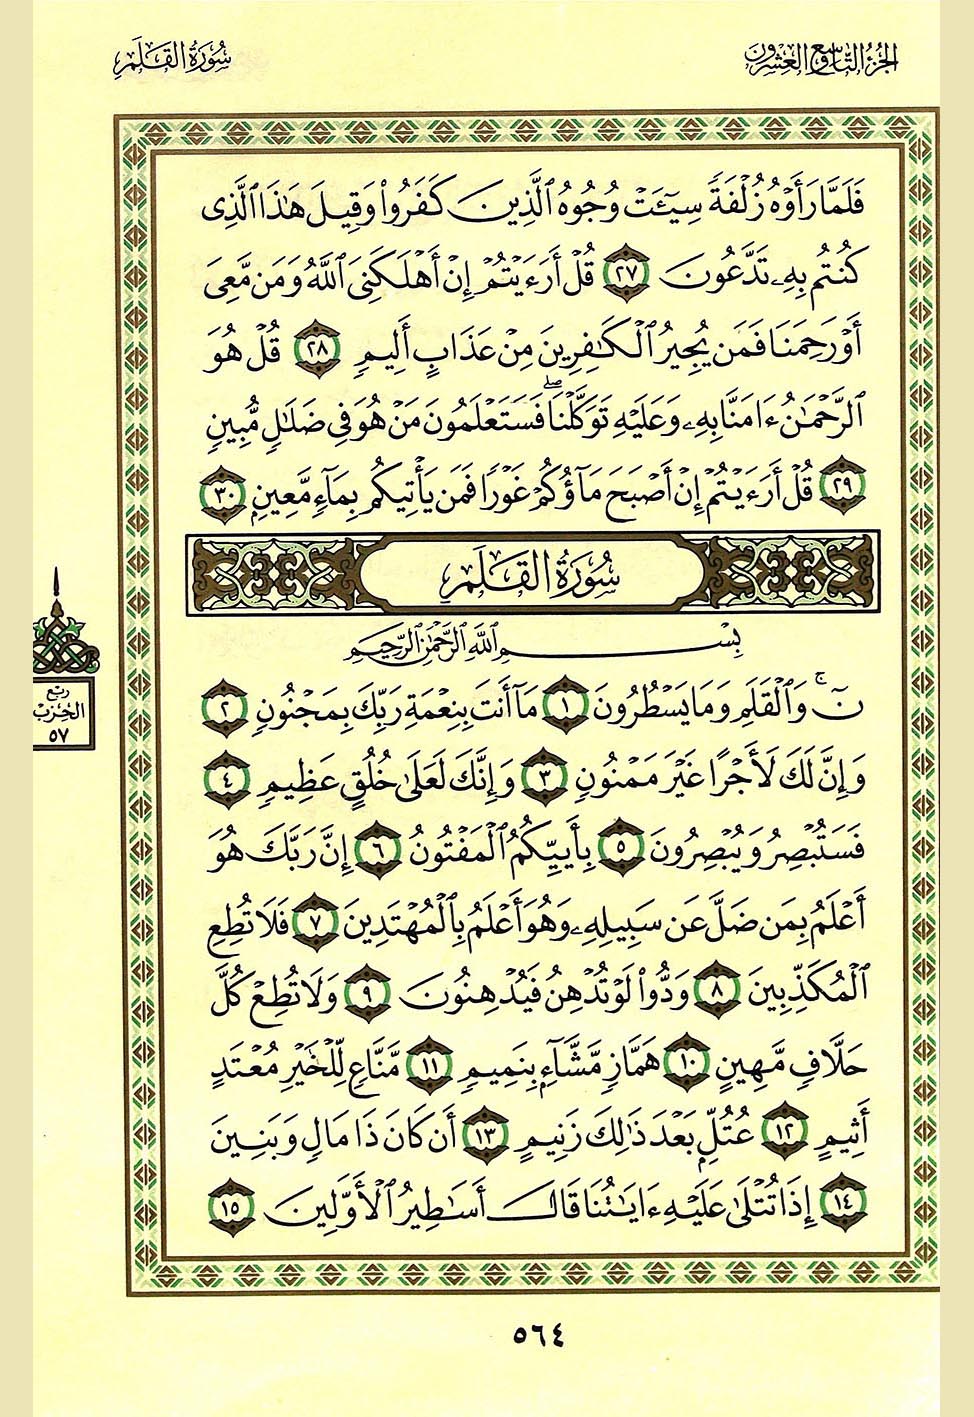 الجزء التاسع والعشرون
سورة القلم
فَلَمَّا رَأَوْهُ زُلْفَةً سِيٓـَٔتْ وُجُوهُ ٱلَّذِينَ كَفَرُوا۟ وَقِيلَ هَٰذَا ٱلَّذِى
كُنتُم بِهِۦ تَدَّعُونَ ٢٧ قُلْ أَرَءَيْتُمْ إِنْ أَهْلَكَنِىَ ٱللَّهُ وَمَن مَّعِىَ
أَوْ رَحِمَنَا فَمَن يُجِيرُ ٱلْكَٰفِرِينَ مِنْ عَذَابٍ أَلِيمٍ ٢٨ قُلْ هُوَ
ٱلرَّحْمَٰنُ ءَامَنَّا بِهِۦ وَعَلَيْهِ تَوَكَّلْنَا ۖ فَسَتَعْلَمُونَ مَنْ هُوَ فِى ضَلَٰلٍ مُّبِينٍ
٢٩ قُلْ أَرَءَيْتُمْ إِنْ أَصْبَحَ مَآؤُكُمْ غَوْرًا فَمَن يَأْتِيكُم بِمَآءٍ مَّعِينٍۭ ٣٠
سُورَةُ القَلَمِ
بِسْمِ ٱللَّهِ ٱلرَّحْمَٰنِ ٱلرَّحِيمِ
نٓ ۚ وَٱلْقَلَمِ وَمَا يَسْطُرُونَ ١ مَآ أَنتَ بِنِعْمَةِ رَبِّكَ بِمَجْنُونٍ ٢
وَإِنَّ لَكَ لَأَجْرًا غَيْرَ مَمْنُونٍ ٣ وَإِنَّكَ لَعَلَىٰ خُلُقٍ عَظِيمٍ ٤
فَسَتُبْصِرُ وَيُبْصِرُونَ ٥ بِأَييِّكُمُ ٱلْمَفْتُونُ ٦ إِنَّ رَبَّكَ هُوَ
أَعْلَمُ بِمَن ضَلَّ عَن سَبِيلِهِۦ وَهُوَ أَعْلَمُ بِٱلْمُهْتَدِينَ ٧ فَلَا تُطِعِ
ٱلْمُكَذِّبِينَ ٨ وَدُّوا۟ لَوْ تُدْهِنُ فَيُدْهِنُونَ ٩ وَلَا تُطِعْ كُلَّ
حَلَّافٍ مَّهِينٍ ١٠ هَمَّازٍ مَّشَّآءٍۭ بِنَمِيمٍ ١١ مَّنَّاعٍ لِّلْخَيْرِ مُعْتَدٍ
أَثِيمٍ ١٢ عُتُلٍّۭ بَعْدَ ذَٰلِكَ زَنِيمٍ ١٣ أَن كَانَ ذَا مَالٍ وَبَنِينَ
١٤ إِذَا تُتْلَىٰ عَلَيْهِ ءَايَٰتُنَا قَالَ أَسَٰطِيرُ ٱلْأَوَّلِينَ ١٥
ربع
الحزب
٥٧
٥٦٤